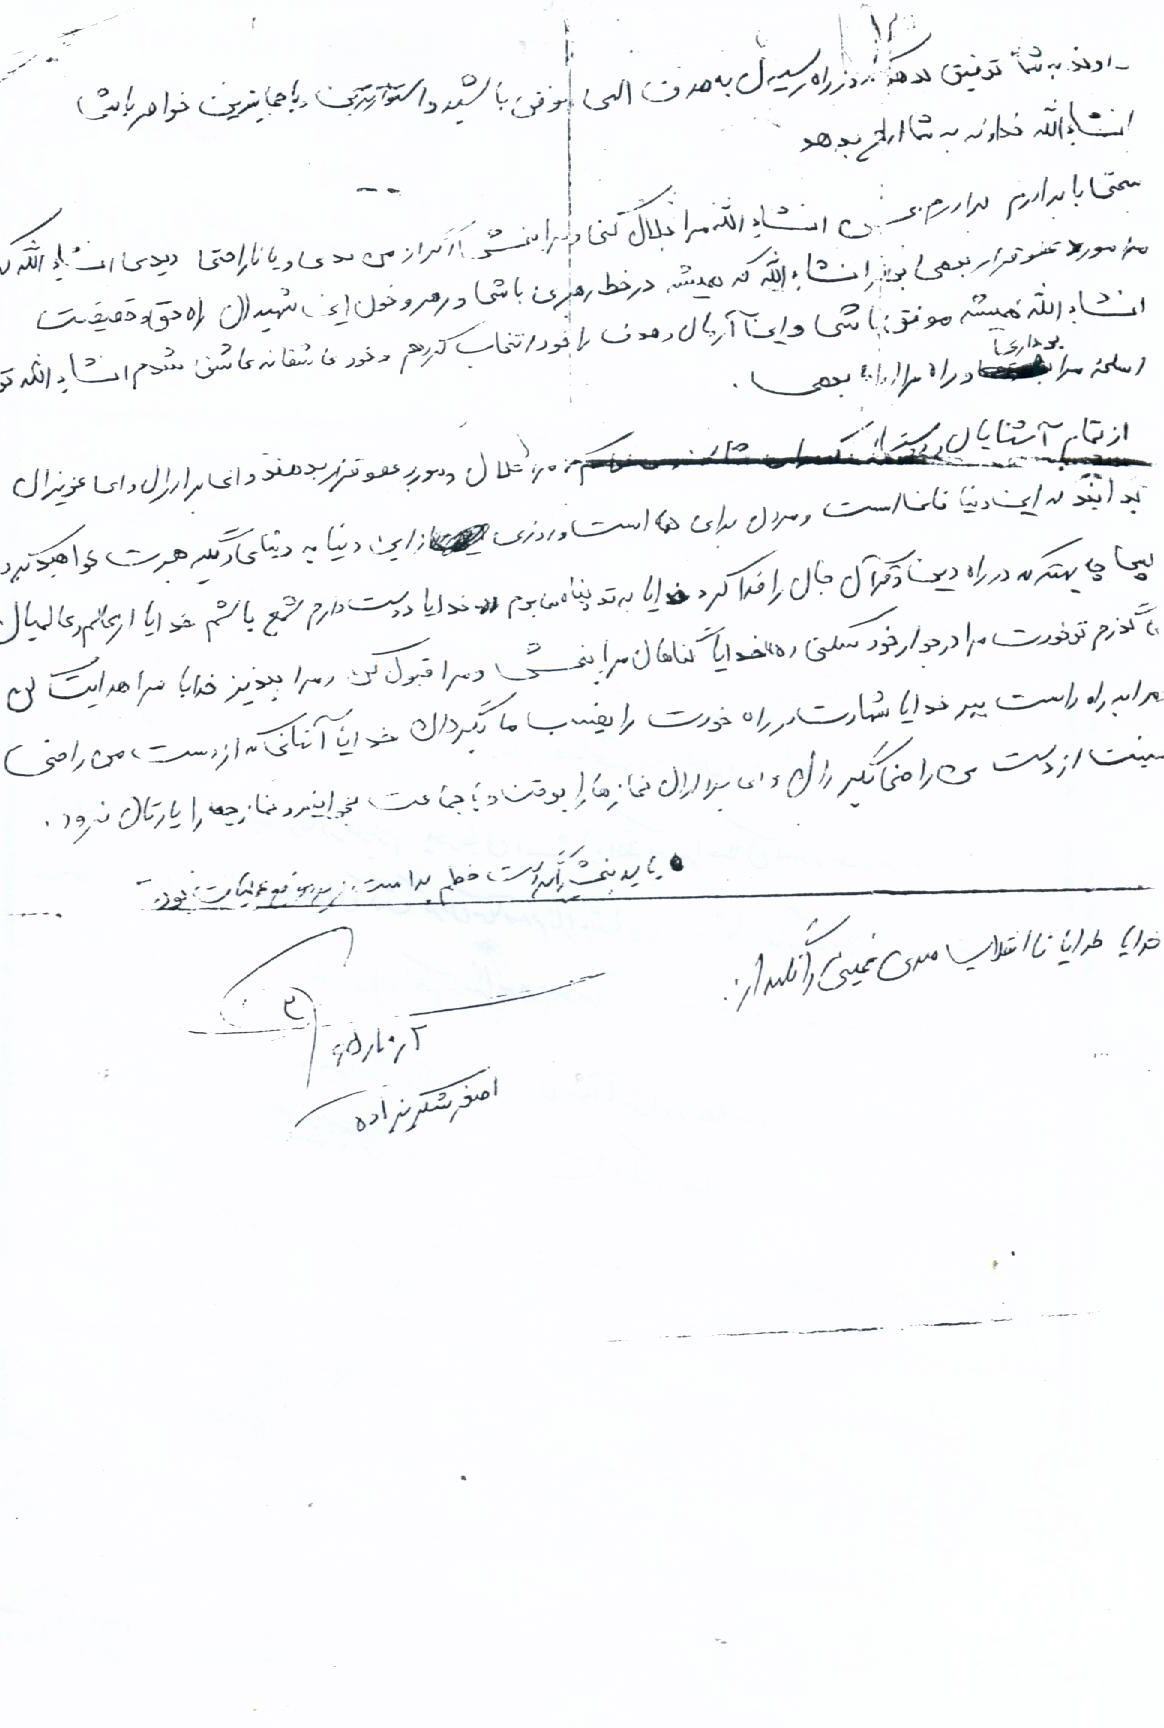 به شما توفیق بدهد که در راه رسیدن به هدف الهی موفق باشید و استوارترین باحیاترین خواهر باشی
انشاءالله خداوند به شما اجر بدهد
سخنی با برادرم برادرم انشاءالله مرا حلال کنی و مرا ببخشی اگر از من بدی و یا ناراحتی دیدی انشاءالله که
مرا مورد عفو قرار بدهی انشاءالله که همیشه در خط رهبری باشی و رهرو خون این شهیدان راه حق و حقیقت
انشاءالله همیشه موفق باشی و این آرمان و هدف را خود انتخاب کردم و خودم عاشقانه عاشق شدم انشاءالله تو
اسلحه مرا برداری و راه مرا ادامه بدهی .
از تمام آشنایان مرا حلال و مورد عفو قرار بدهند و ای برادران و ای عزیزان
بدانید که این دنیا فانی است و مردن برای همه است و روزی از این دنیا به دنیای دیگر هجرت خواهید کرد
پس چه بهتر که در راه دین و قرآن جان را فدا کرد خدایا به تو پناه می برم خدایا دوست دارم شمع باشم خدایا از عالم و عالمیان
گذرم تو خودت مرا در جوار خود سکنی ده خدایا گناهان مرا ببخش و مرا قبول کن و مرا بپذیر خدایا مرا هدایت کن
مرا به راه راست ببر خدایا شهادت در راه خودت را نصیب ما بگردان خدایا آنانی که از دست من راضی
نیستند از دست من راضی بگردان و ای برادران نمازها را بوقت و با جماعت بخوانید و نماز جمعه را یادتان نرود .
باید ببخشید اگر دست خطم بد است
خدایا خدایا تا انقلاب مهدی خمینی را نگهدار .
اصغر شکریزاده